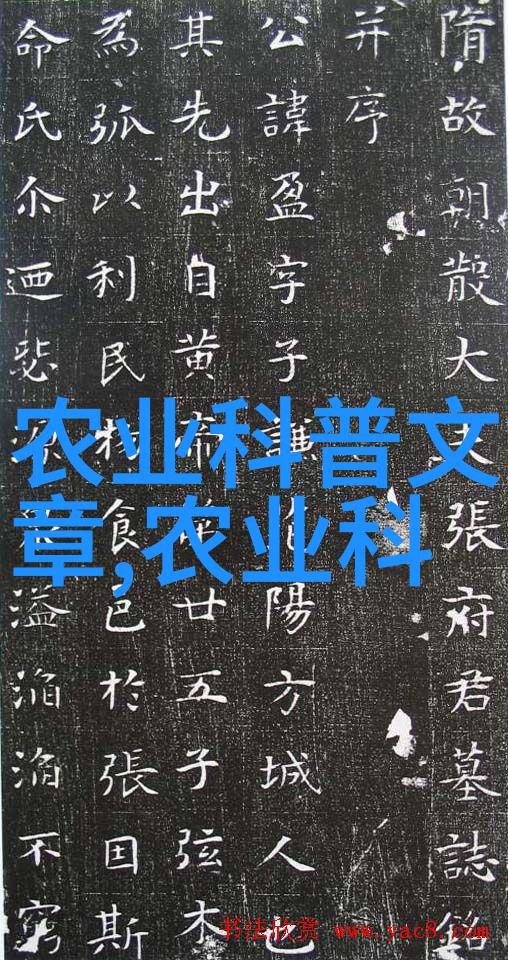 隋故朝散大夫張府君墓誌銘
并序
公諱盈字子謙陽方城人也
其先出自黄帝廿五子弦木
為弧以利民物食邑於張因斯
命氏尒迺源溢滔滔不窮
农业科普文
章,农业科
书法欣赏 www.yac8.com